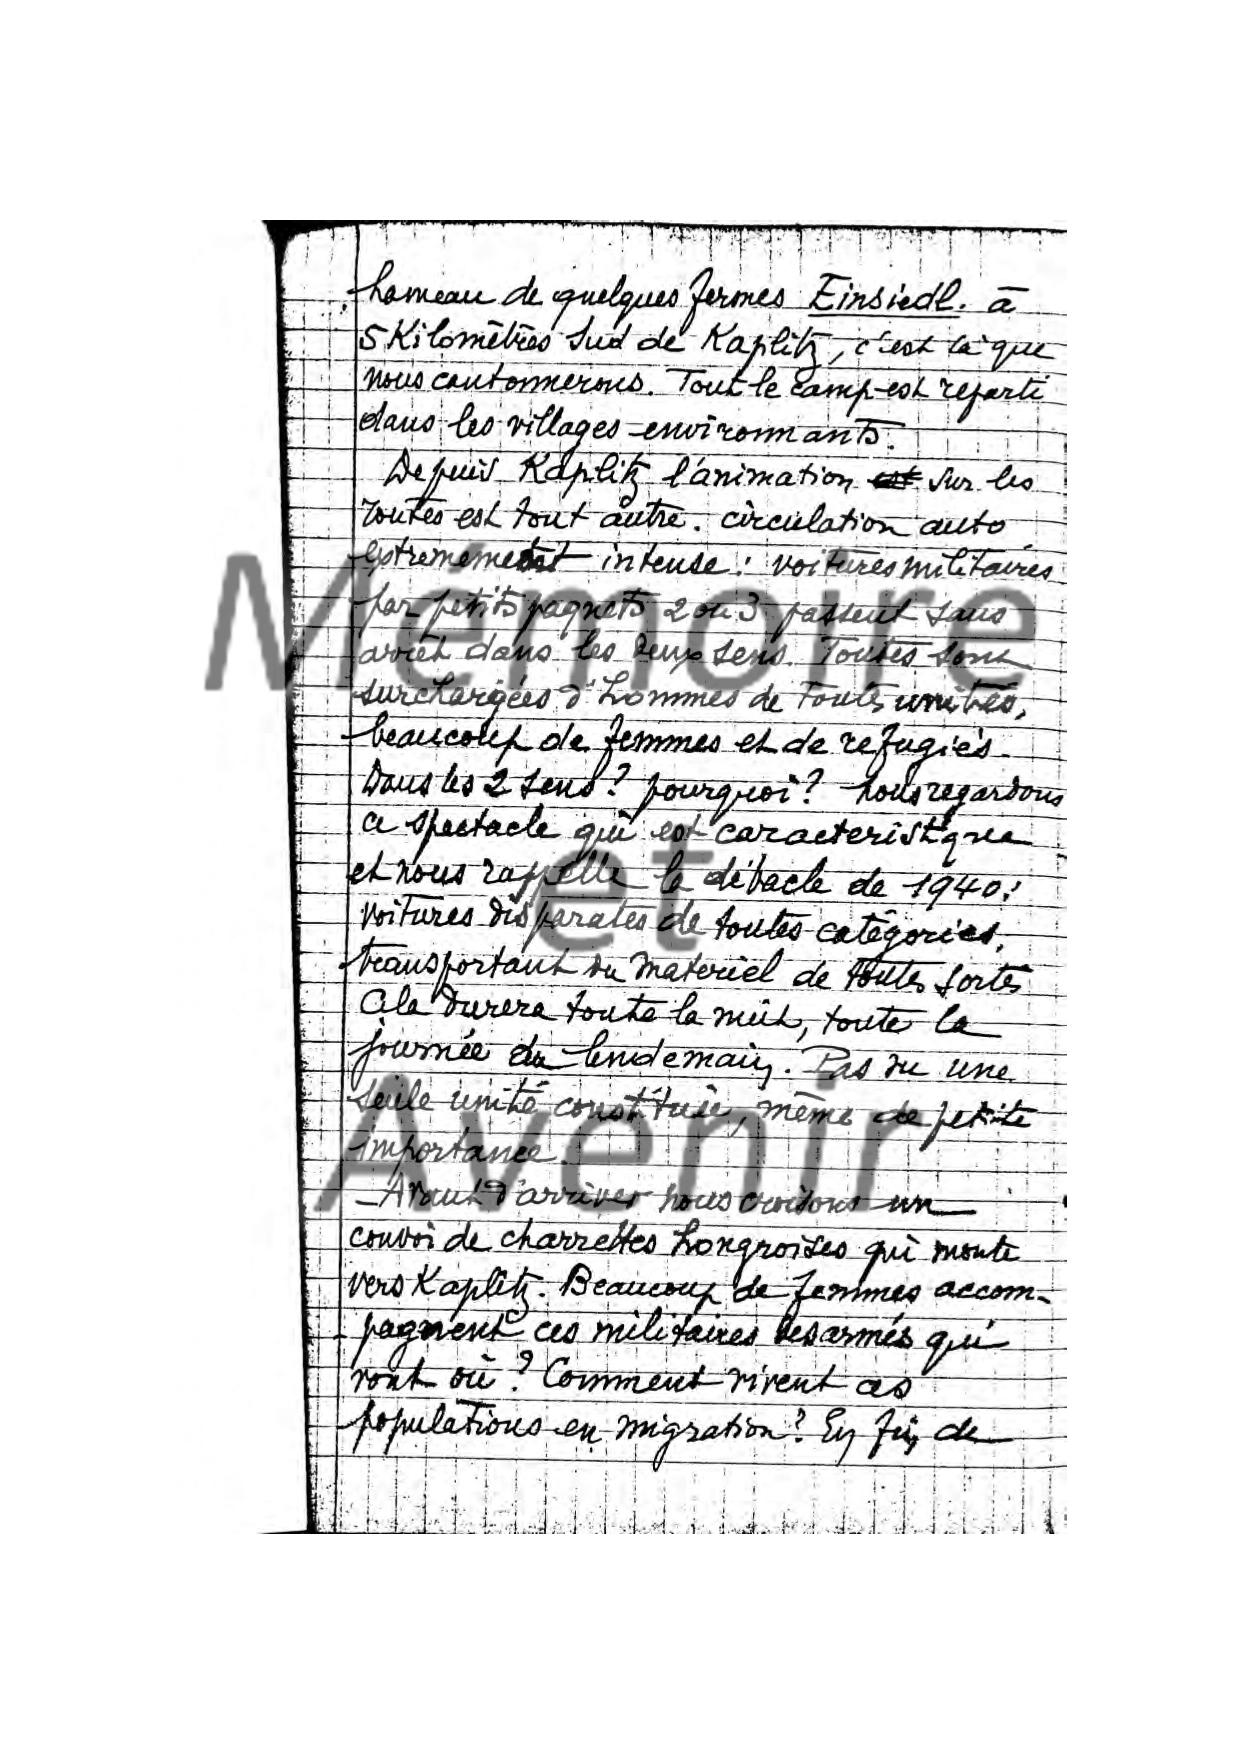 hameau de quelques fermes Einsiedl. à
5 Kilomètres sud de Kaplitz, c'est là que
nous cantonnerons. Tout le camp est reparti
dans les villages environnants.
Depuis Kaplitz l'animation est sur les
routes est tout autre. circulation auto
extremement intense : voitures militaires
par petits paquets 2 ou 3 passent sans
arrêt dans les deux sens. Toutes sont
surchargées d'hommes de toutes unités,
beaucoup de femmes et de refugiés.
Dans les 2 sens ? pourquoi ? nous regardons
ce spectacle qui est caracteristique
et nous rappelle la débacle de 1940 :
voitures disparates de toutes catégories,
transportant du materiel de toutes sortes
Cela durera toute la nuit, toute la
journée du lendemain. Pas vu une
seule unité constituée, même de petite
importance.
Avant d'arriver nous croisons un
convoi de charrettes hongroises qui monte
vers Kaplitz. Beaucoup de femmes accom-
pagnent ces militaires desarmés qui
vont où ? Comment vivent ces
populations en migration ? En fin de
Mémoire
et
Avenir